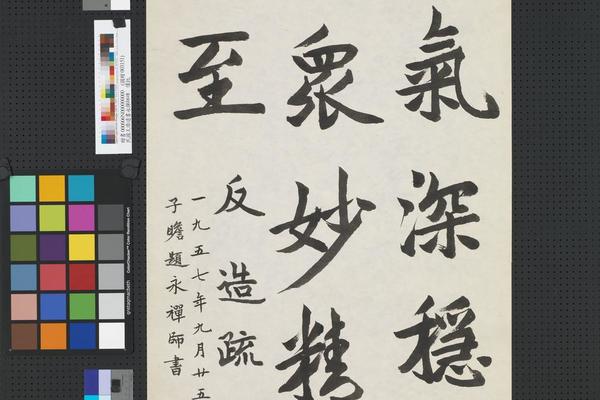 氣深穩
眾妙精
至
反造疏
一九五七年九月廿五
子瞻題永禪師書